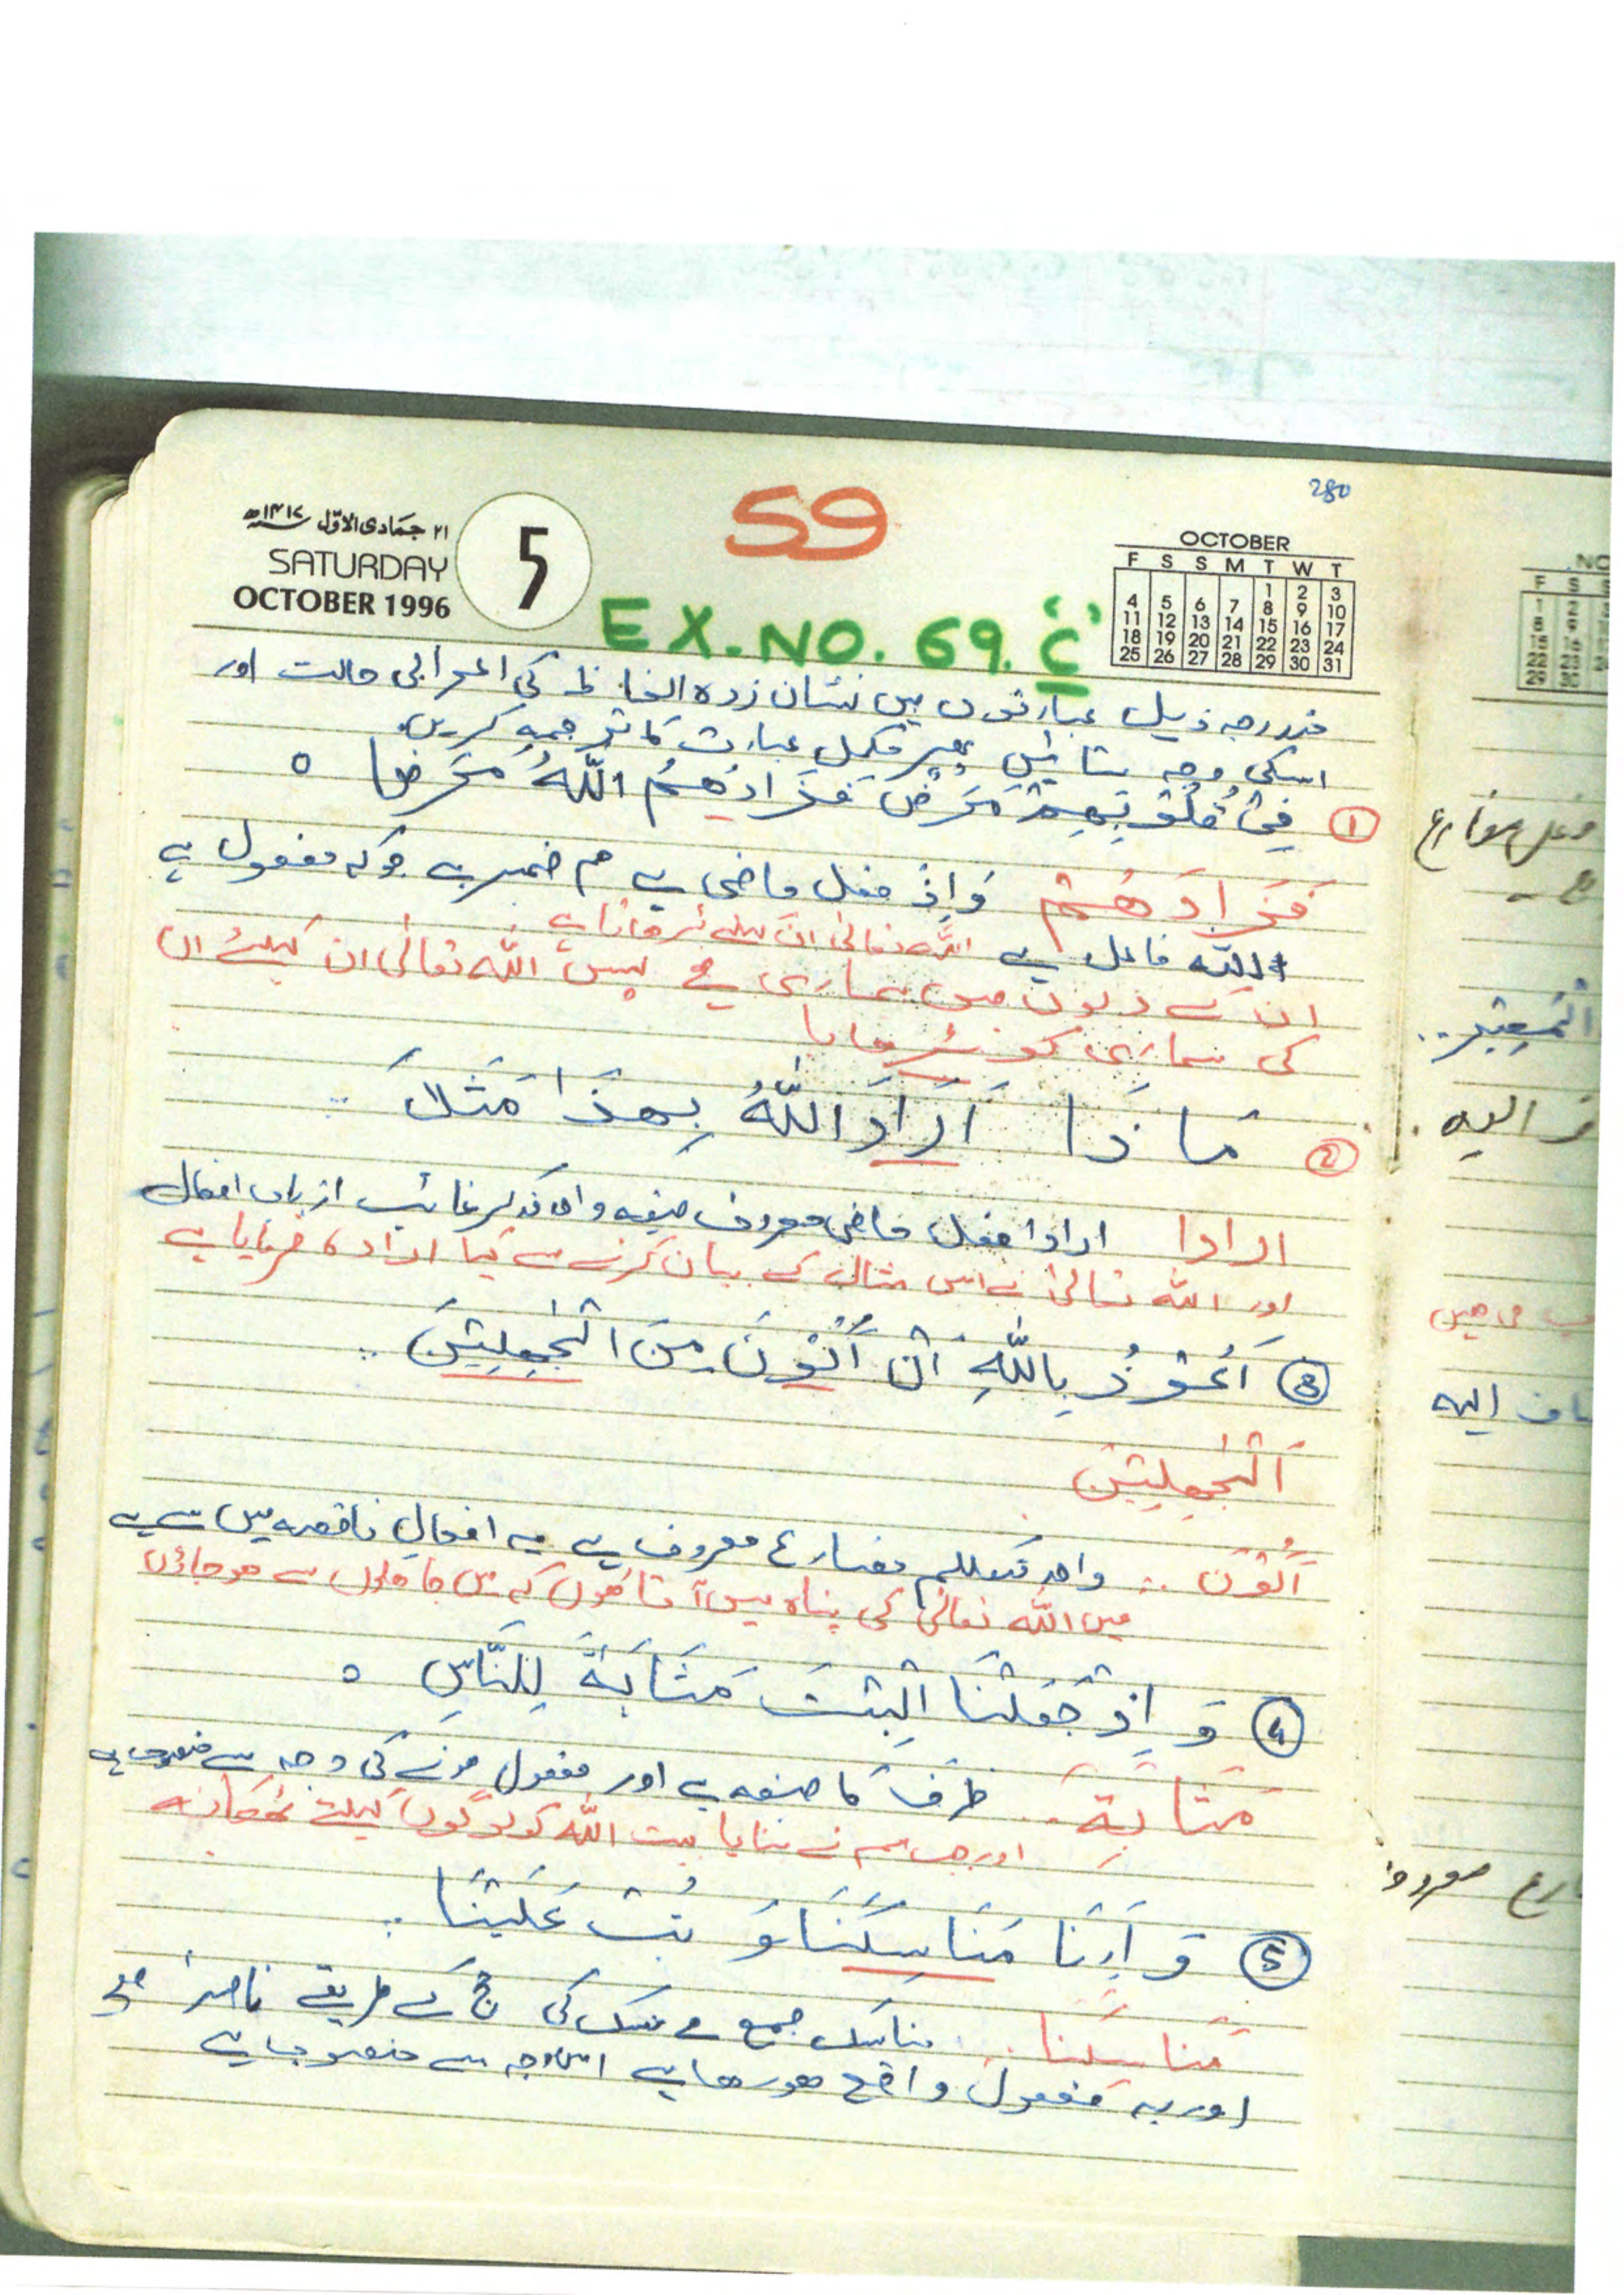 280
59
۲۱ جمادی الاوّل ۱۴۱۷ھ
SATURDAY
OCTOBER 1996
5
OCTOBER
F S S M T W T
1 2 3
4 5 6 7 8 9 10
11 12 13 14 15 16 17
18 19 20 21 22 23 24
25 26 27 28 29 30 31
EX. NO. 69. ‘ج’
مندرجہ ذیل عبارتوں میں نشان زدہ الفاظ کی اعرابی حالت اور
اسکی وجہ بتائیں پھر مکمل عبارت کا ترجمہ کریں
① فِیْ قُلُوْبِهِمْ مَرَضٌ فَزَادَهُمُ اللّٰهُ مَرَضًا ○
فَزَادَهُمْ فعل ماضی ہے ھم ضمیر ہے جو کہ مفعول ہے
اللہ فاعل ہے اللہ تعالیٰ ان کیلئے
ان کے دلوں میں بیماری ہے پس اللہ تعالیٰ ان کیلئے ان
کی بیماری کو
② مَاذَا اَرَادَ اللّٰهُ بِهٰذَا مَثَلًا
ارادا ارادا فعل ماضی معروف صیغہ واحد مذکر غائب از باب افعال
اور اللہ تعالیٰ نے اس مثال کے بیان کرنے سے کیا ارادہ فرمایا ہے
③ اَعُوْذُ بِاللّٰهِ اَنْ اَکُوْنَ مِنَ الْجٰهِلِیْنَ
اَلْجٰهِلِیْنَ
اَکُوْنَ واحد متکلم مضارع معروف ہے یہ افعالِ ناقصہ میں سے ہے
میں اللہ تعالیٰ کی پناہ میں آتا ہوں کہ میں جاہلوں سے ہو جاؤں
④ وَ اِذْ جَعَلْنَا الْبَیْتَ مَثَابَةً لِلنَّاسِ ○
مَثَابَةً ظرف کا صیغہ ہے اور مفعول ہونے کی وجہ سے منصوب ہے
اور جب ہم نے بنایا بیت اللہ کو لوگوں کیلئے ٹھکانہ
⑤ وَ اَرِنَا مَنَاسِکَنَا وَ تُبْ عَلَیْنَا
مَنَاسِکَنَا مناسک جمع ہے منسک کی حج کے طریقے
اور یہ مفعول واقع ہو رہا ہے اس وجہ سے منصوب ہے
فعل مضارع
الیہ
میں
اف الیہ
ارع معروف